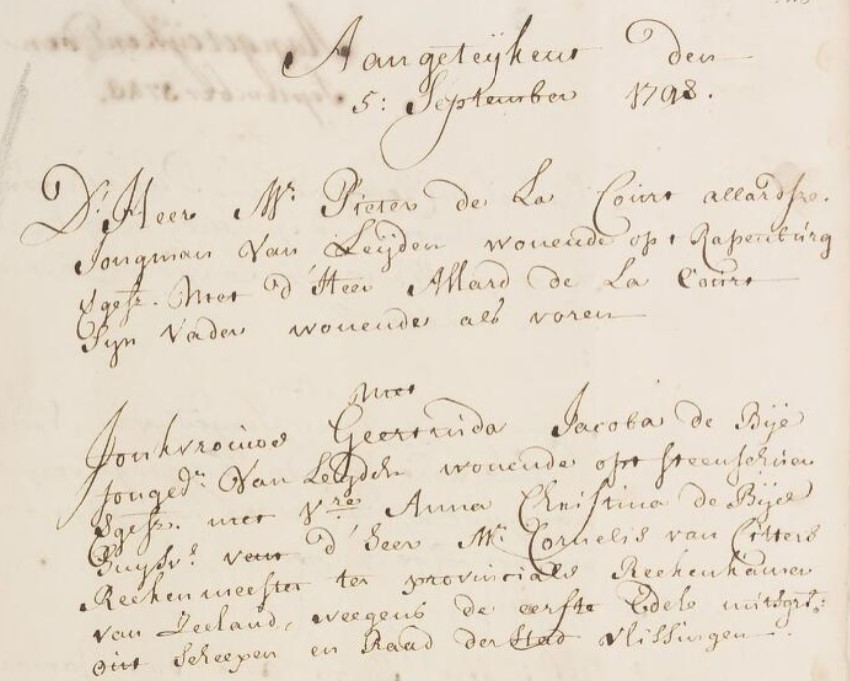 Aangeteijkent den
5: September 1748.
D' Heer Mr. Pieter de La Court allardsze.
Jongman Van Leijden wonende op 't Rapenburg
Vgesz. Met d' Heer Allard de La Court
Sijn Vader wonende als voren
Met
Jonkvrouwe Geertruida Jacoba de Bije
Jonged.r Van Leijden wonende opt steenschuer
Vgesz. met Vre Anna Christina de Bije
huysvr. van d' heer Mr. Cornelis van Citters
Reekenmeester ter provinciale Reekenkamer
van Zeeland, weegens de eerste Edele mitsgrs.
out scheepen en Raad der Stad vlissingen